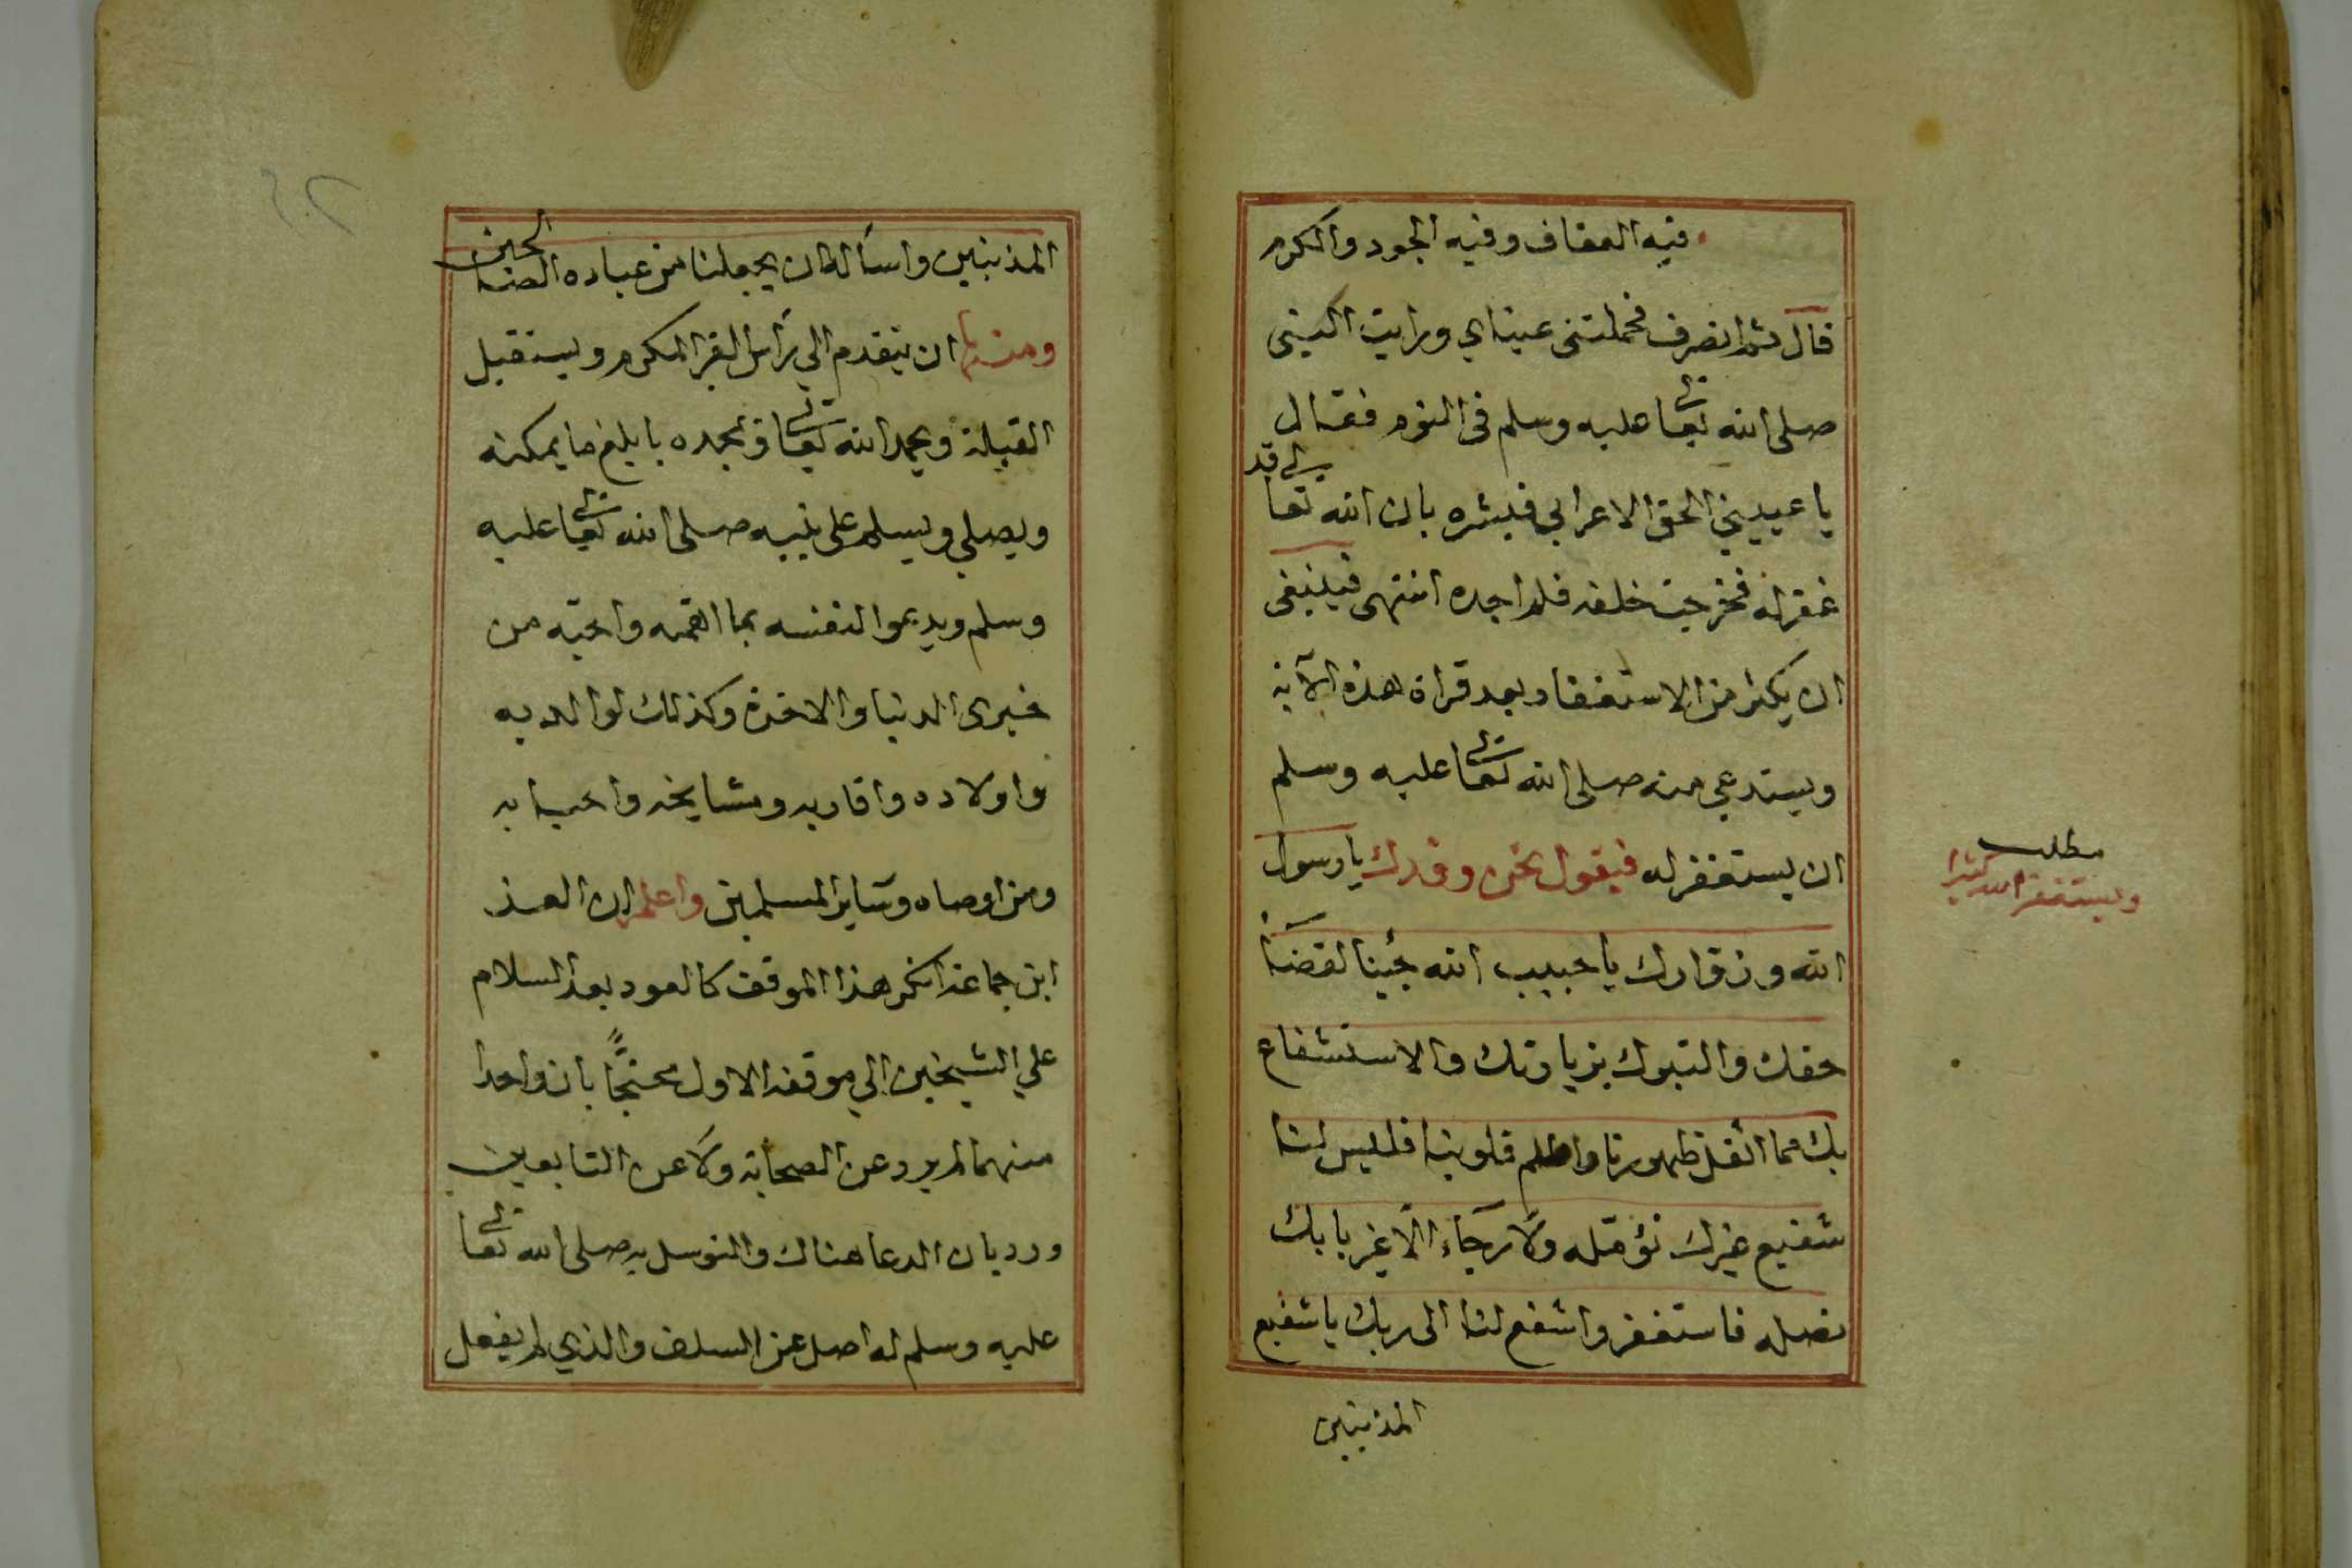 فيه العفاف وفيه الجود والكرم
قال ثم انصرف فحملتنى عيناي ورايت النبى
صلى الله تعالى عليه وسلم فى النوم فقال
يا عبيدي الحق الاعرابي فبشره بان الله تعالى قد
غفر له فخرجت خلفه فلم اجده انتهى فينبغى
ان يكثر من الاستغفار بعد قراة هذه الآية
ويستدعي منه صلى الله تعالى عليه وسلم
ان يستغفر له فيقول نحن وفدك يا رسول
الله وزوارك يا حبيب الله جئنا لقضاء
حقك والتبرك بزيارتك والاستشفاع
بك مما اثقل ظهورنا واظلم قلوبنا فليس لنا
شفيع غيرك نؤمله ولا رجاء الا غير بابك
نصله فاستغفر واشفع لنا الى ربك يا شفيع
المذنبين
مطلب
ويستغفر الله كثيرا
المذنبين واسأله ان يجعلنا من عباده الصالحين
ومنها ان يتقدم الي رأس القبر المكرم ويستقبل
القبلة ويحمد الله تعالى ويمجده بابلغ ما يمكنه
ويصلي ويسلم على نبيه صلى الله تعالى عليه
وسلم ويدعوا لنفسه بما اهمه واحبه من
خيرى الدنيا والاخرة وكذلك لوالديه
واولاده واقاربه ومشايخه واحبابه
ومن اوصاه وسائر المسلمين واعلم ان العز
ابن جماعة انكر هذا الموقف كالعود بعد السلام
علي الشيخين الي موقفه الاول محتجًّا بان واحدا
منهما لم يرد عن الصحابة ولا عن التابعين
ورد بان الدعا هناك والتوسل به صلى الله تعالى
عليه وسلم له اصل عن السلف والذي لم يفعل